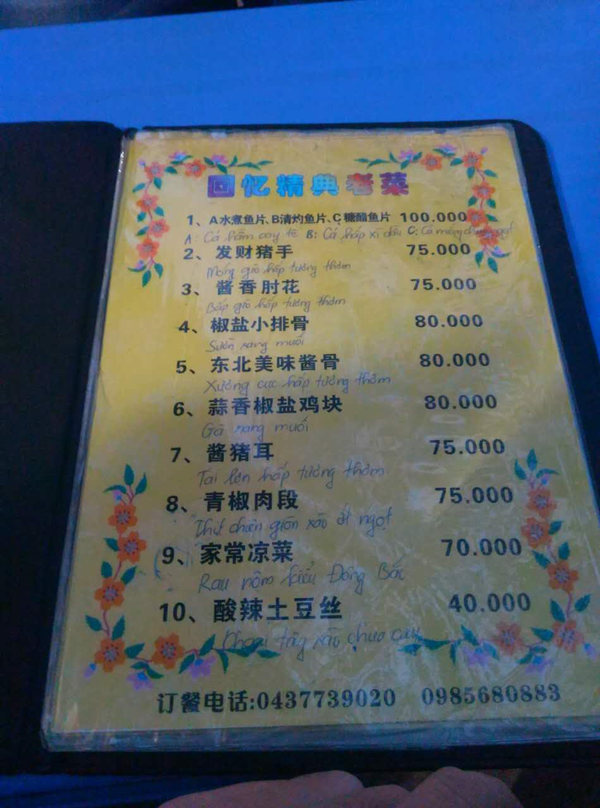 回忆精典老菜
1、A水煮鱼片、B清灼鱼片、C糖醋鱼片 100.000
A: Cá hầm cay tê B: Cá hấp xì dầu C:
2、发财猪手 75.000
Móng giò hấp tương thơm
3、酱香肘花 75.000
Bắp giò hấp tương thơm
4、椒盐小排骨 80.000
Sườn rang muối
5、东北美味酱骨 80.000
Xương cục hấp tương thơm
6、蒜香椒盐鸡块 80.000
Gà rang muối
7、酱猪耳 75.000
Tai lợn hấp tương thơm
8、青椒肉段 75.000
Thịt chiên giòn xào ớt ngọt
9、家常凉菜 70.000
Rau nộm kiểu Đông Bắc
10、酸辣土豆丝 40.000
Khoai tây xào chua cay
订餐电话:0437739020 0985680883